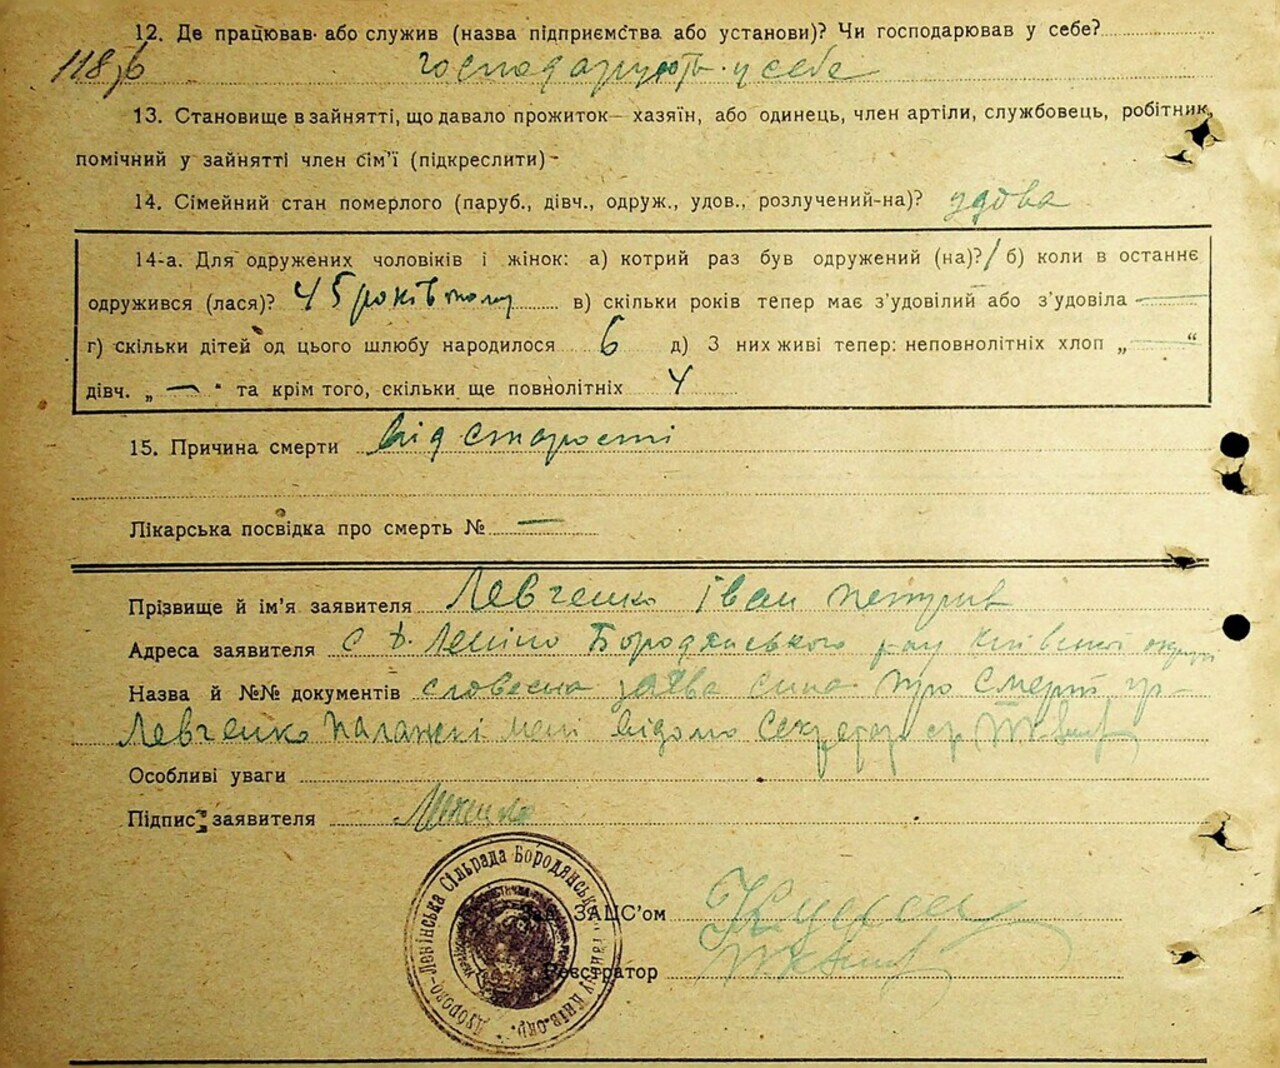 12. Де працював або служив (назва підприємства або установи)? Чи господарював у себе?
118зб господарують у себе
13. Становище в зайнятті, що давало прожиток — хазяїн, або одинець, член артіли, службовець, робітник,
помічний у зайнятті член сім'ї (підкреслити) -
14. Сімейний стан померлого (паруб., дівч., одруж., удов., розлучений-на)? удова
14-а. Для одружених чоловіків і жінок: а) котрий раз був одружений (на)? / б) коли в останнє
одружився (лася)? 45 років тому в) скільки років тепер має з'удовілий або з'удовіла —
г) скільки дітей од цього шлюбу народилося 6 д) З них живі тепер: неповнолітніх хлоп „ — "
дівч. „ — " та крім того, скільки ще повнолітніх 4
15. Причина смерти від старості
Лікарська посвідка про смерть № —
Прізвище й ім'я заявителя Левченко Іван Петрів
Адреса заявителя с Д. Леніно Бородянського рай Київської округи
Назва й №№ документів словесна заява сина про смерть гр-
Левченко Палажкі мені відомо Секретар с/р
Особливі уваги
Підпис заявителя Левченко
Зав. ЗАЦС'ом
Реєстратор
Дуброво-Ленінська Сільрада Бородянськ. району Київ. окр.